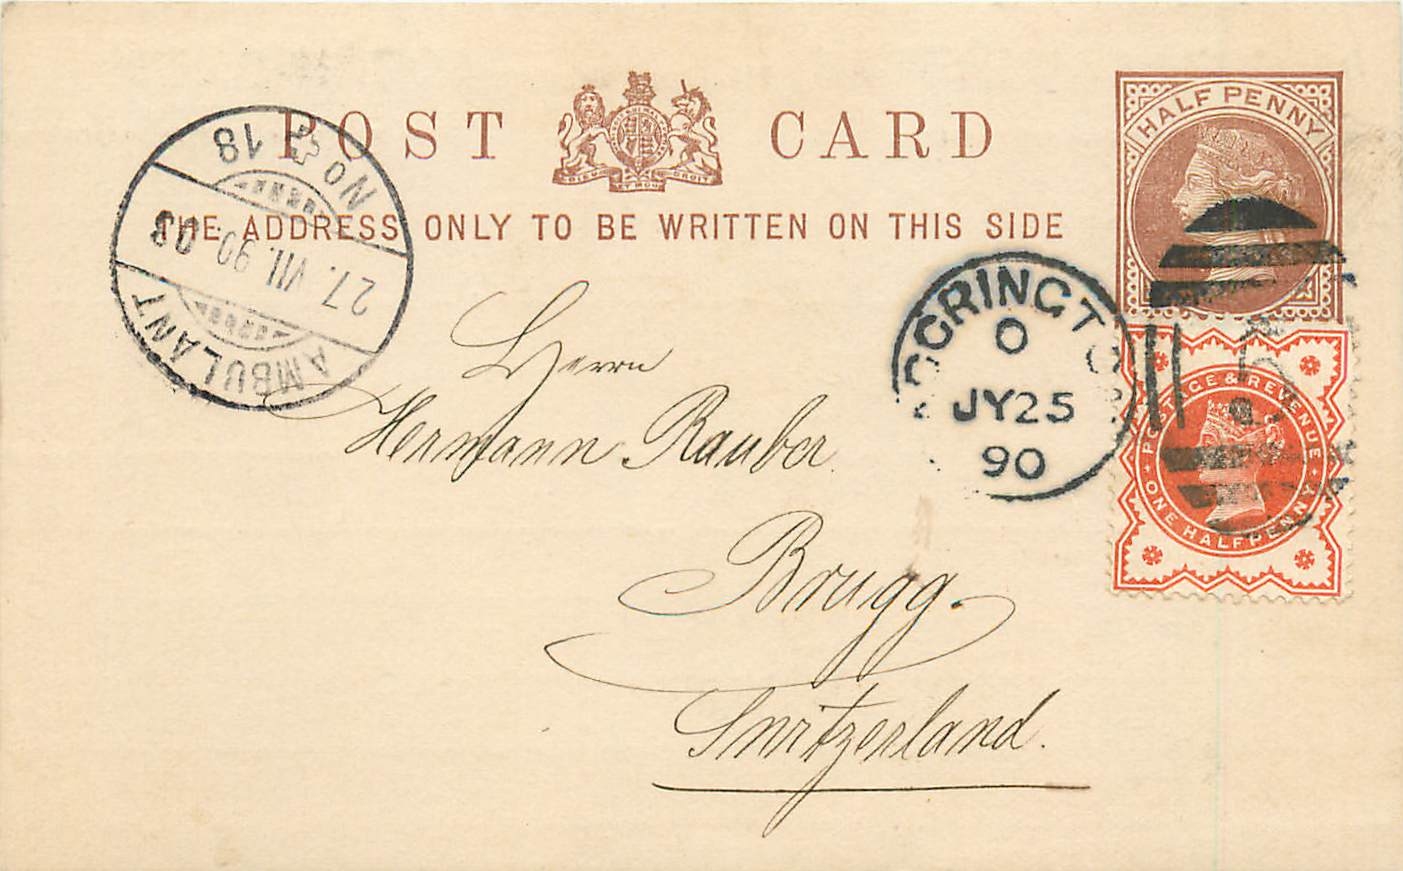 POST CARD
THE ADDRESS ONLY TO BE WRITTEN ON THIS SIDE
HALF PENNY
DIEU ET MON DROIT
AMBULANT
No 18
27. VII. 90
O
JY 25
90
POSTAGE & REVENUE
ONE HALFPENNY
Herrn
Hermann Rauber.
Brugg.
Switzerland.